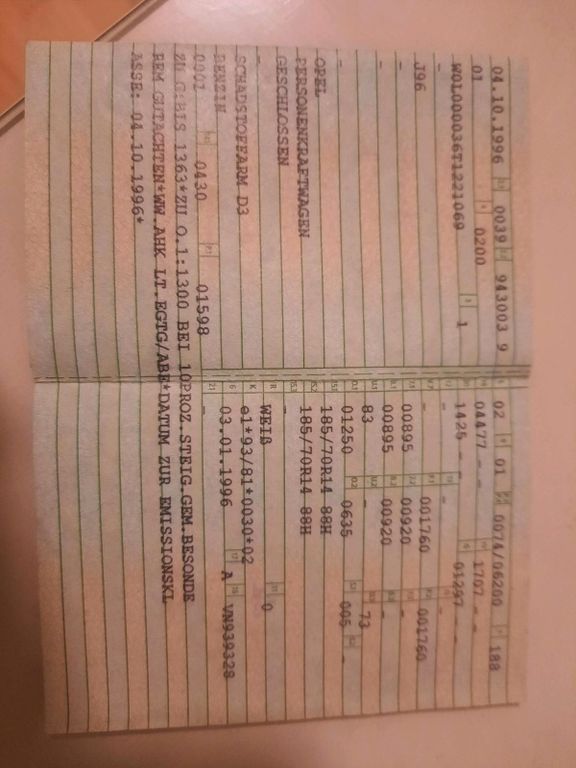 04.10.1996 0039 943003 9
01 0200
W0L000036T1221069 1
-
J96
-
-
-
OPEL
PERSONENKRAFTWAGEN
GESCHLOSSEN
-
SCHADSTOFFARM D3
BENZIN
0001 0430 01598
02 01 0074/06200 188
04477 - - 1707 - -
1425 - - 01297 - -
- -
- 001760 001760
00895 00920 -
00895 00920 -
83 - 73
01250 0635 005 -
185/70R14 88H
185/70R14 88H
-
WEIß 0
e1*93/81*0030*02
03.01.1996 A VN939328
-
ZU G:BIS 1363*ZU O.1:1300 BEI 10PROZ.STEIG.GEM.BESONDE
REM GUTACHTEN*WW.AHK LT.EGTG/ABE*DATUM ZUR EMISSIONSKL
ASSE: 04.10.1996*